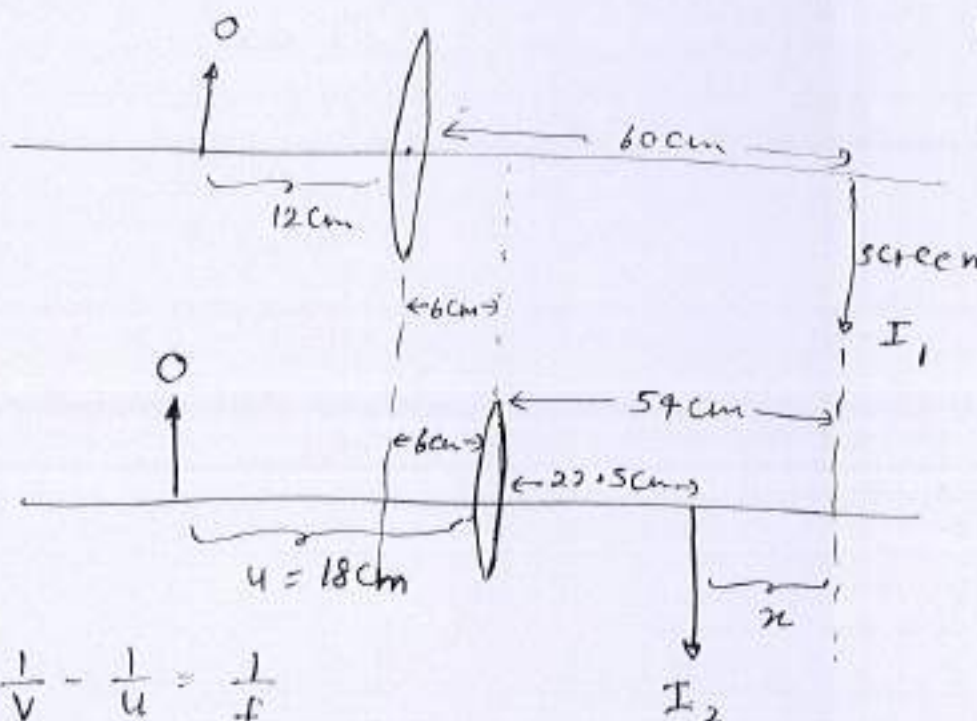 O
60cm
12cm
screen
I₁
6cm
O
54cm
6cm
22.5cm
u = 18cm
x
1/v - 1/u = 1/f
I₂